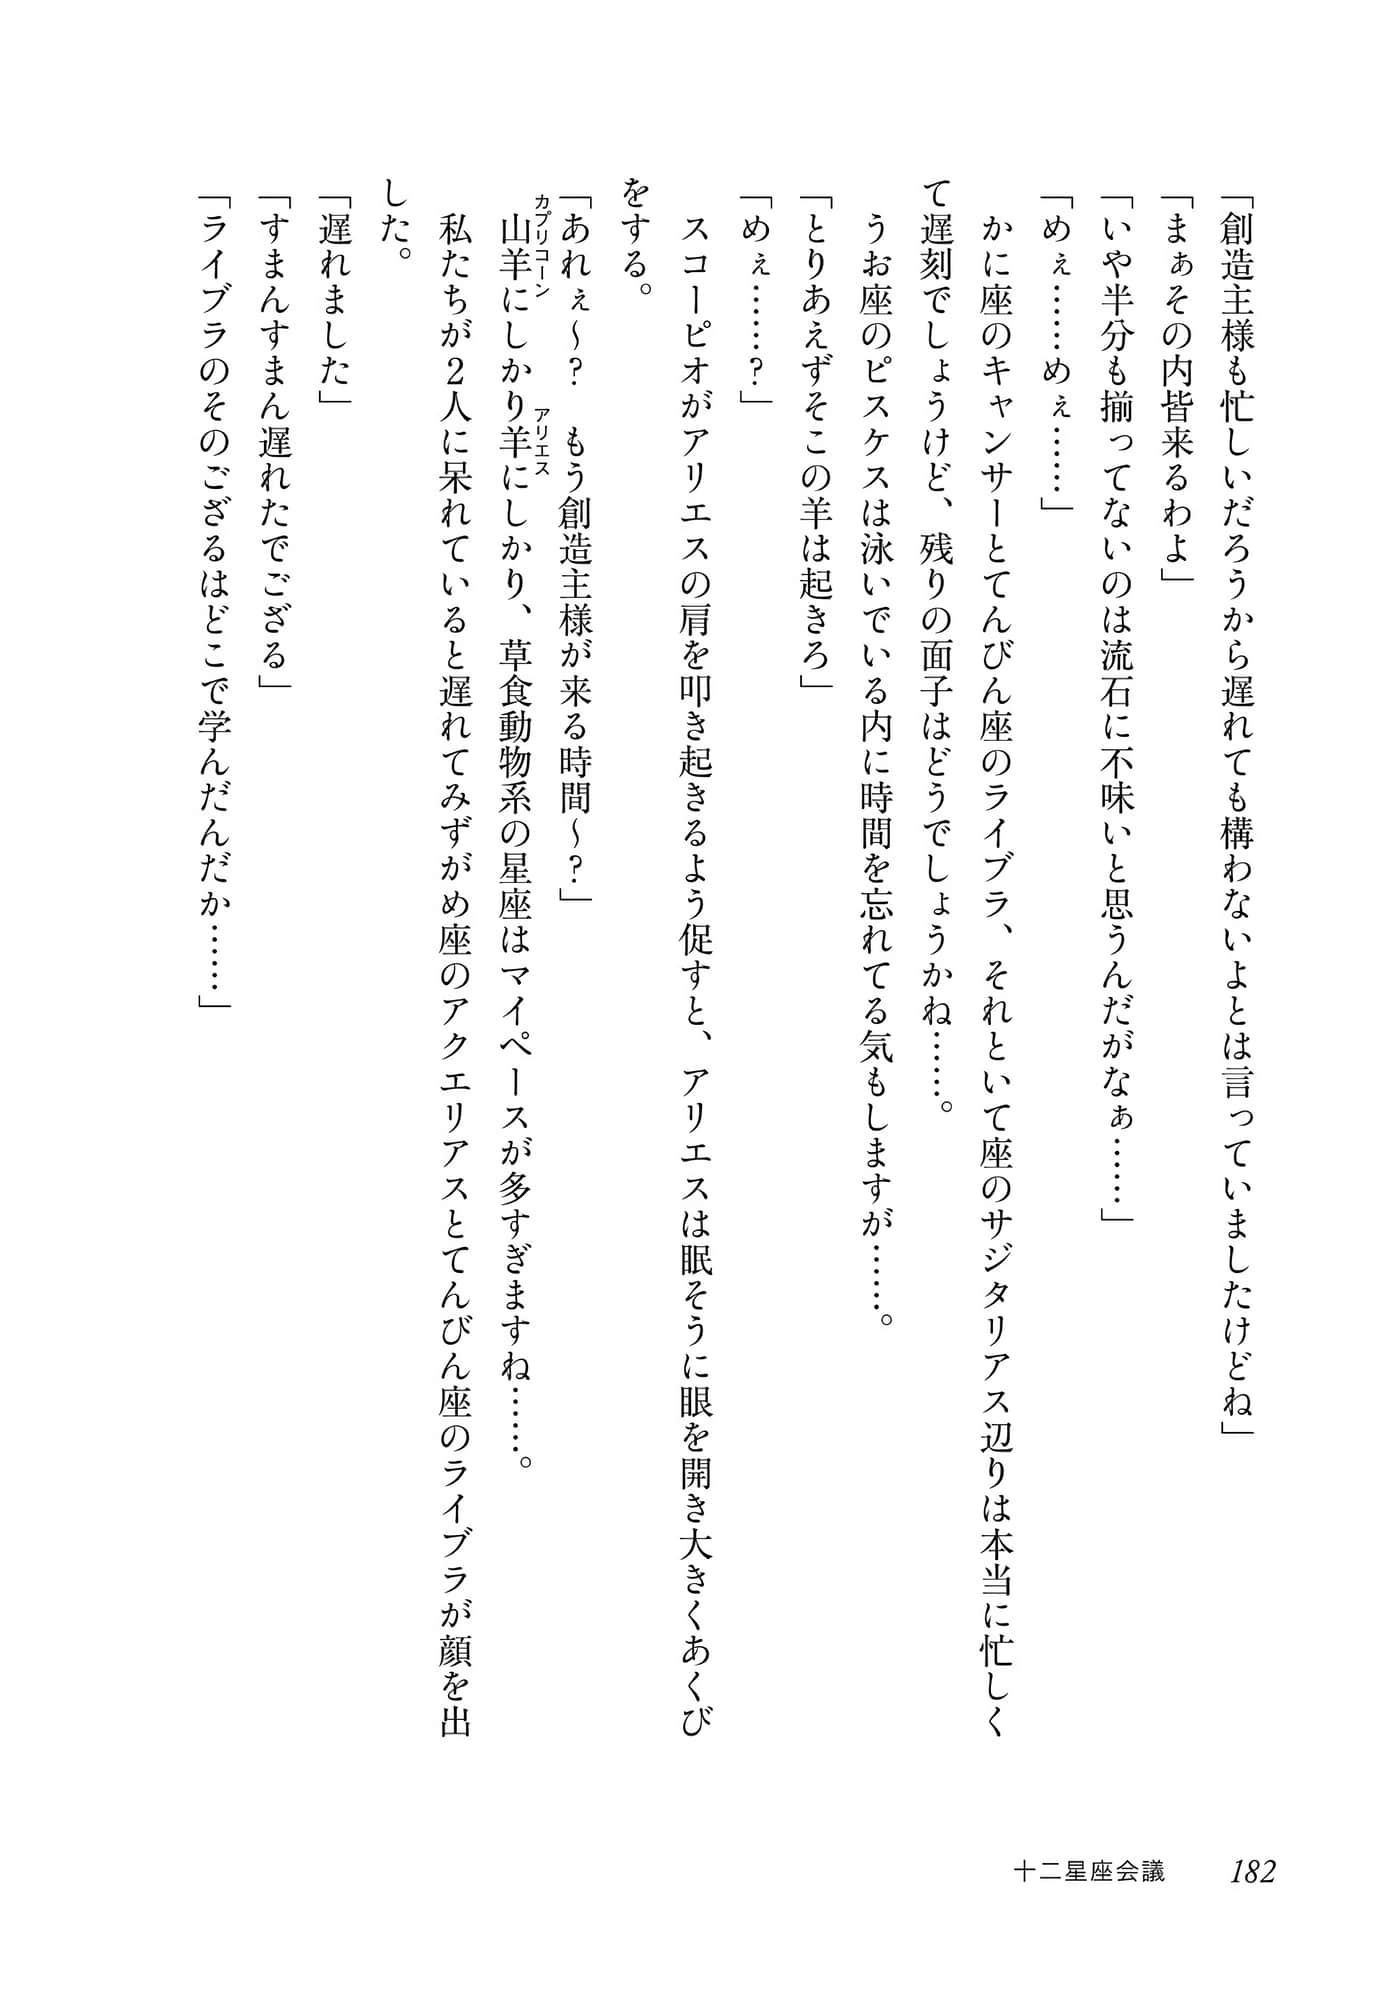 「創造主様も忙しいだろうから遅れても構わないよとは言っていましたけどね」
「まぁその内皆来るわよ」
「いや半分も揃ってないのは流石に不味いと思うんだがなぁ……」
「めぇ……めぇ……」
　かに座のキャンサーとてんびん座のライブラ、それといて座のサジタリアス辺りは本当に忙しく
て遅刻でしょうけど、残りの面子はどうでしょうかね……。
　うお座のピスケスは泳いでいる内に時間を忘れてる気もしますが……。
「とりあえずそこの羊は起きろ」
「めぇ……？」
　スコーピオがアリエスの肩を叩き起きるよう促すと、アリエスは眠そうに眼を開き大きくあくび
をする。
「あれぇ～？　もう創造主様が来る時間～？」
カプリコーン　アリエス
　山羊にしかり羊にしかり、草食動物系の星座はマイペースが多すぎますね……。
　私たちが２人に呆れていると遅れてみずがめ座のアクエリアスとてんびん座のライブラが顔を出
した。
「遅れました」
「すまんすまん遅れたでござる」
「ライブラのそのござるはどこで学んだんだか……」
十二星座会議　182